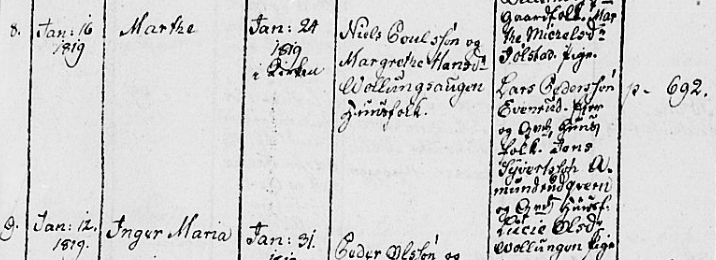 8.
Jan: 16
1819
Marthe
Jan: 24
1819
i Kirken
Niels Poulsøn og
Margrethe Hansdr
Wollungsaugen
Huusfolk.
Gaardfolk. Mar
the Michelsdr
Solstad. Pige.
Lars Pedersøn
Evenrud. Eier
og Huus
folk. Jens
Syvertsøn A
mundrud
og Huusf.
Lucie Olsdr
Wollungen Pige
p. 692.
9.
Jan: 12.
1819.
Inger Maria
Jan: 31.
1819
Peder Olsøn og